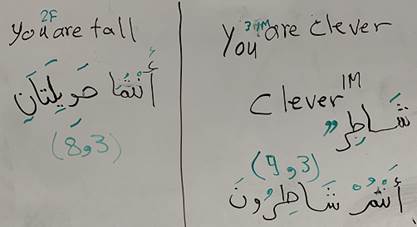 2F
You are tall
أَنْتُمَا طَوِيلَتَانِ
(8و3)
3+M
You are clever
clever 1M
شَاطِرٌ
(9و3)
أَنْتُمْ شَاطِرُونَ